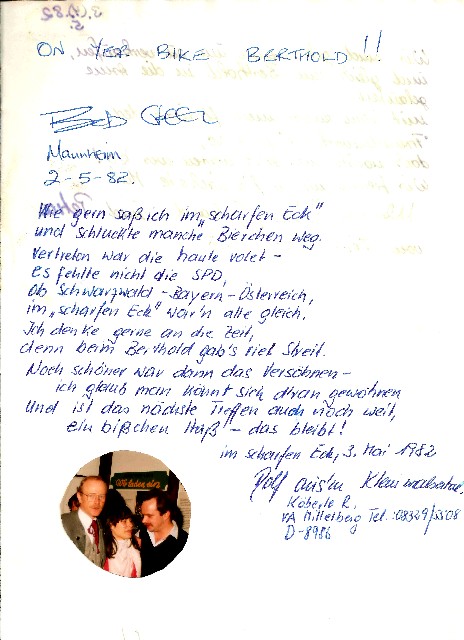 3.(4).82
5
ON YER BIKE BERTHOLD!!
Bob
Mannheim
2-5-82.
Wie gern saß ich im „scharfen Eck"
und schluckte manche Bierchen weg.
Vertreten war die haute volet -
es fehlte nicht die SPD,
Ob Schwarzwald - Bayern - Österreich,
im „scharfen Eck" war'n alle gleich.
Ich denke gerne an die Zeit,
denn beim Berthold gab's viel Streit.
Noch schöner war dann das Versöhnen -
ich glaub man könnt sich dran gewöhnen
Und ist das nächste Treffen auch noch weit,
ein bißchen - das bleibt!
im scharfen Eck, 3. Mai 1982
Rolf aus'm Kleinwalsertal,
Köberle R.
VA Mittelberg Tel.: 08329/5508
D-8986
Wir laden ein: